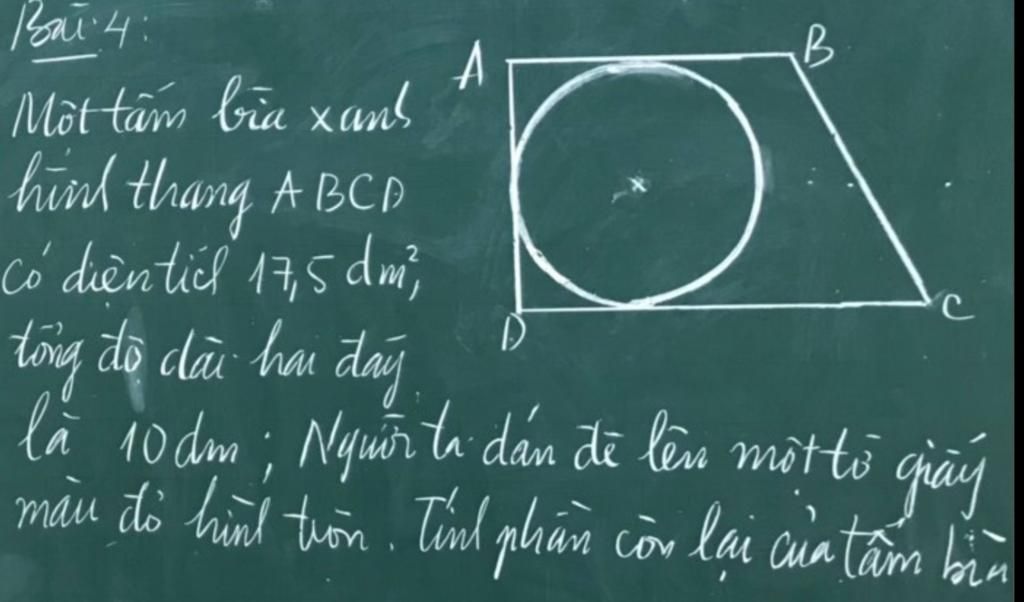 Bài 4:
Một tấm bìa xanh
hình thang ABCD
có diện tích 17,5 dm²,
tổng độ dài hai đáy
là 10dm; Người ta dán đè lên một tờ giấy
màu đỏ hình tròn. Tính phần còn lại của tấm bìa
A
B
D
C